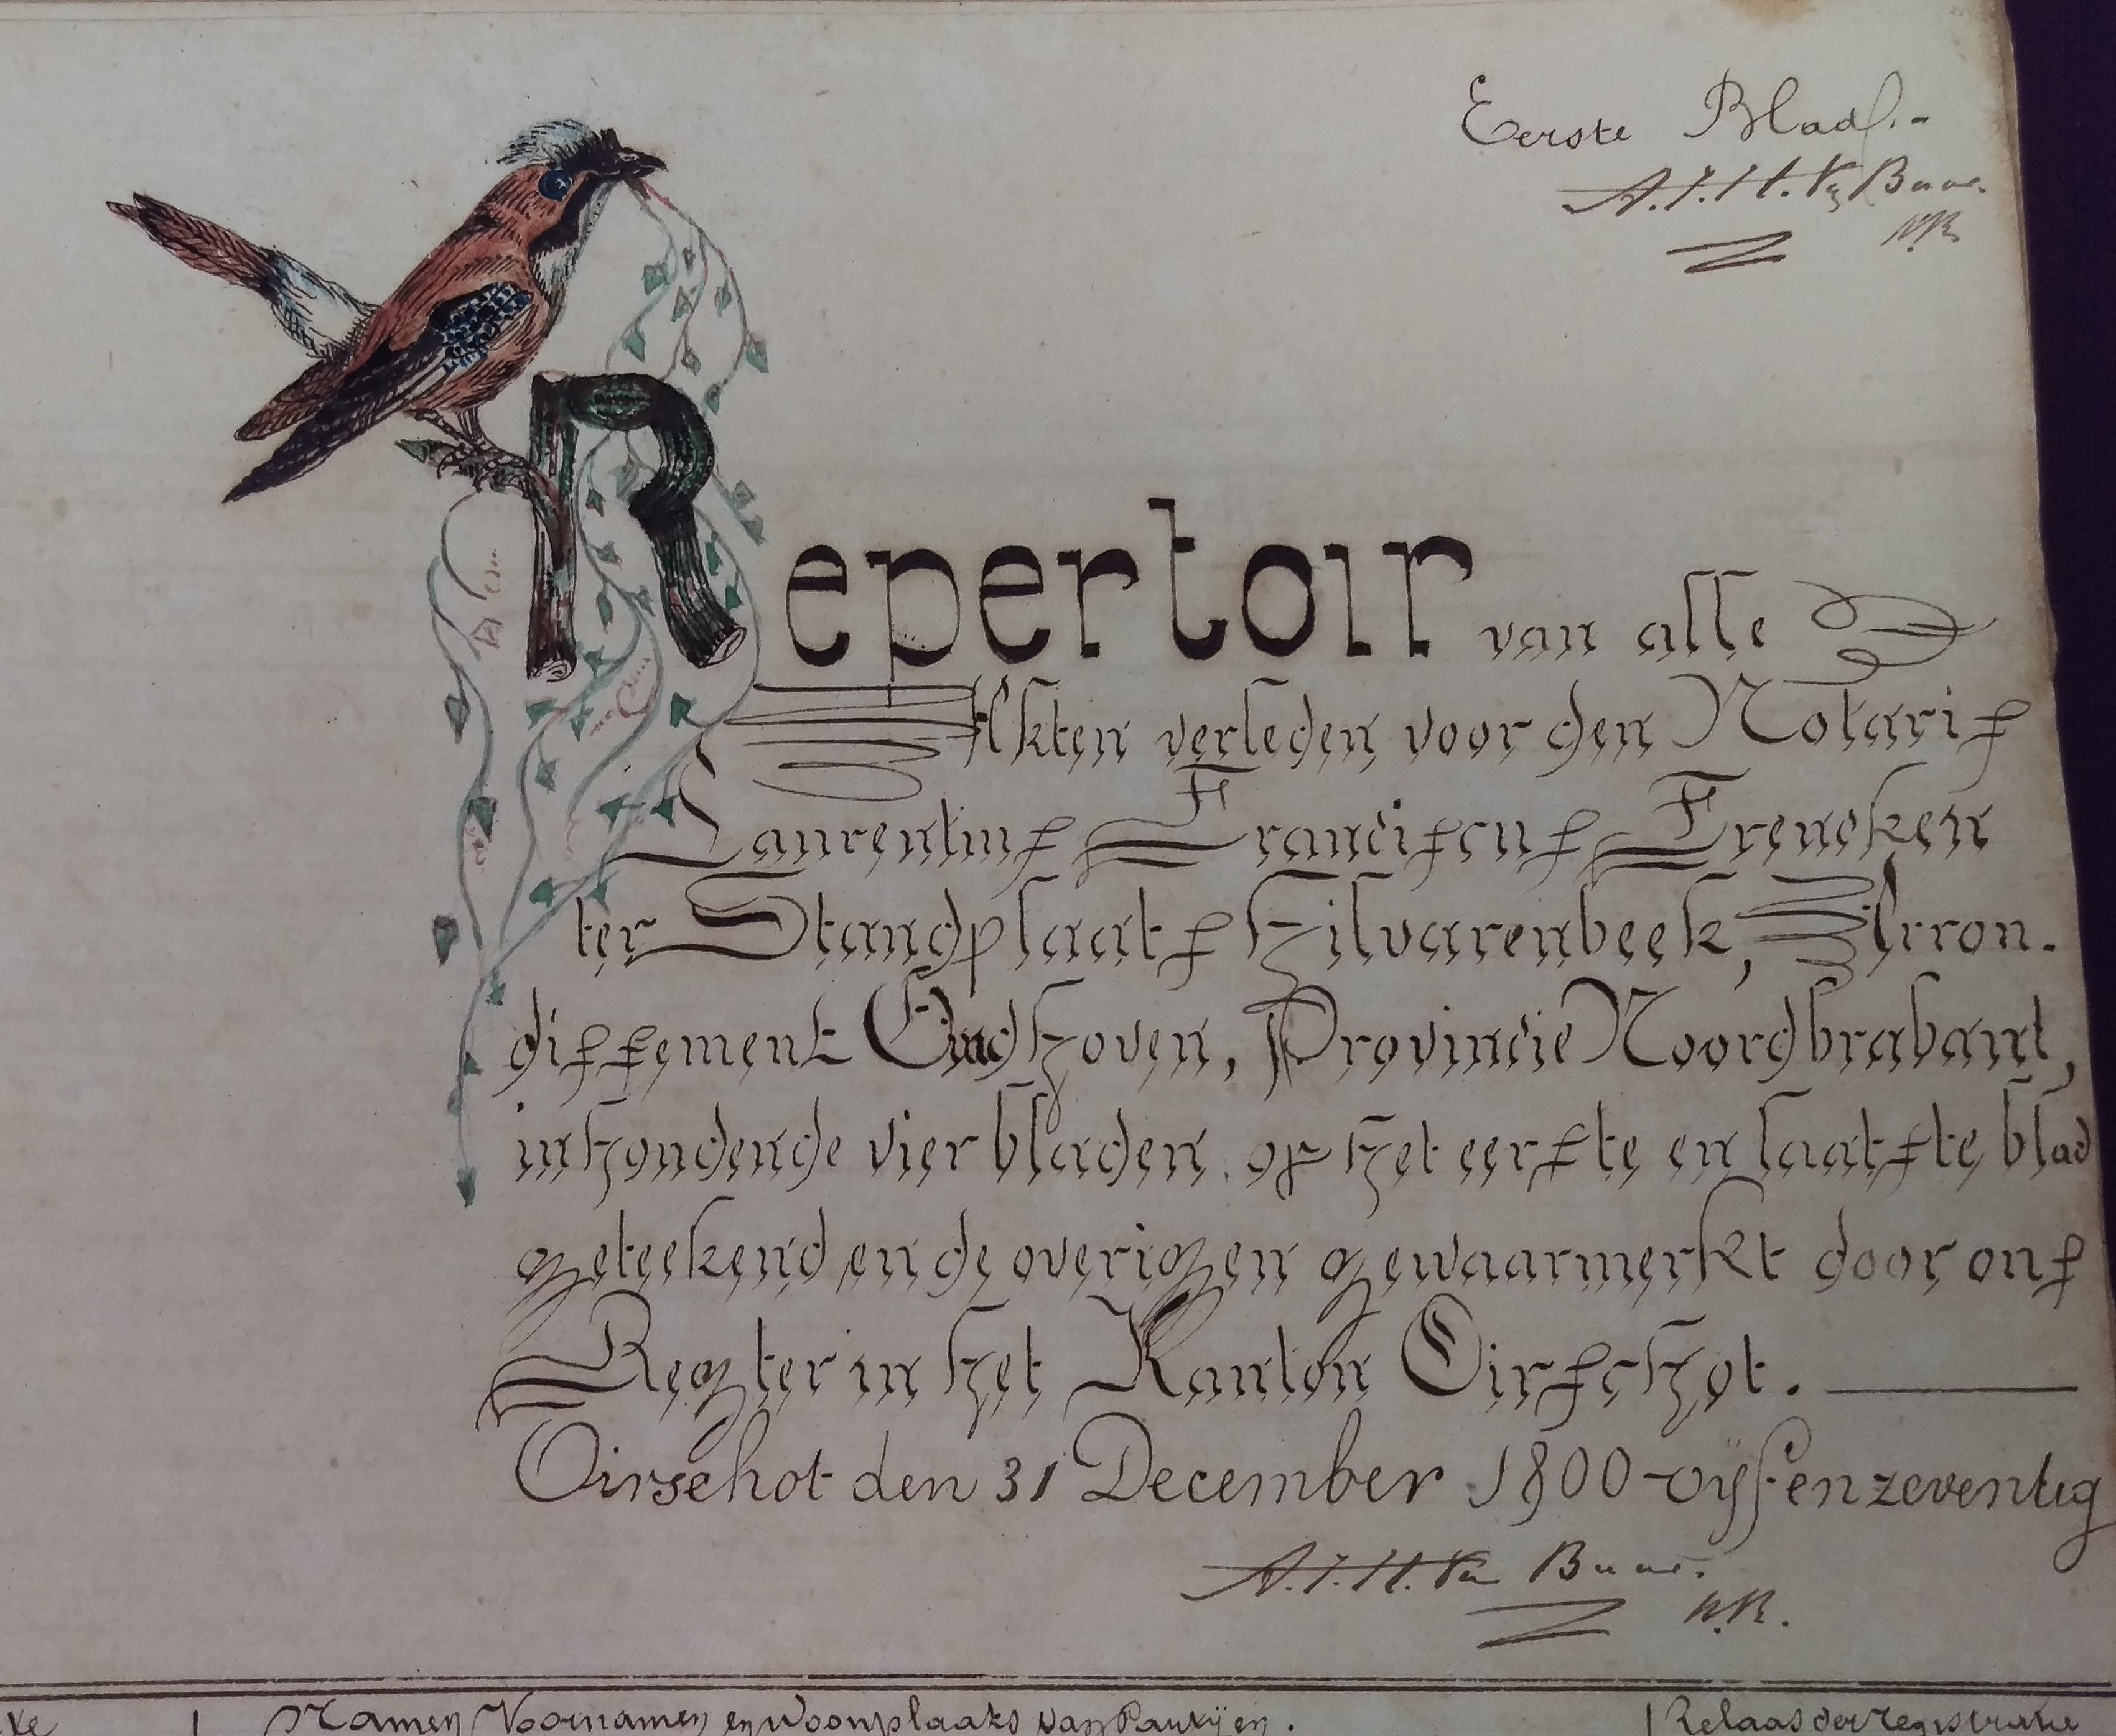 Eerste Blad.-
A.J.H. Vn
Repertoir van alle
Akten verleden voor den Notaris
Laurentius Franciscus Frencken
ter Standplaats Hilvarenbeek, Arron-
dissement Eindhoven, Provincie Noordbrabant,
inhoudende vier bladen, op het eerste en laatste blad
geteekend en de overigen gewaarmerkt door ons
Regter in het Kanton Oirschot.
Oirschot den 31 December 1800 vijf en zeventig
A.J.H. Van
Namen Voornamen en Woonplaats van Partijen.
Relaas der registratie